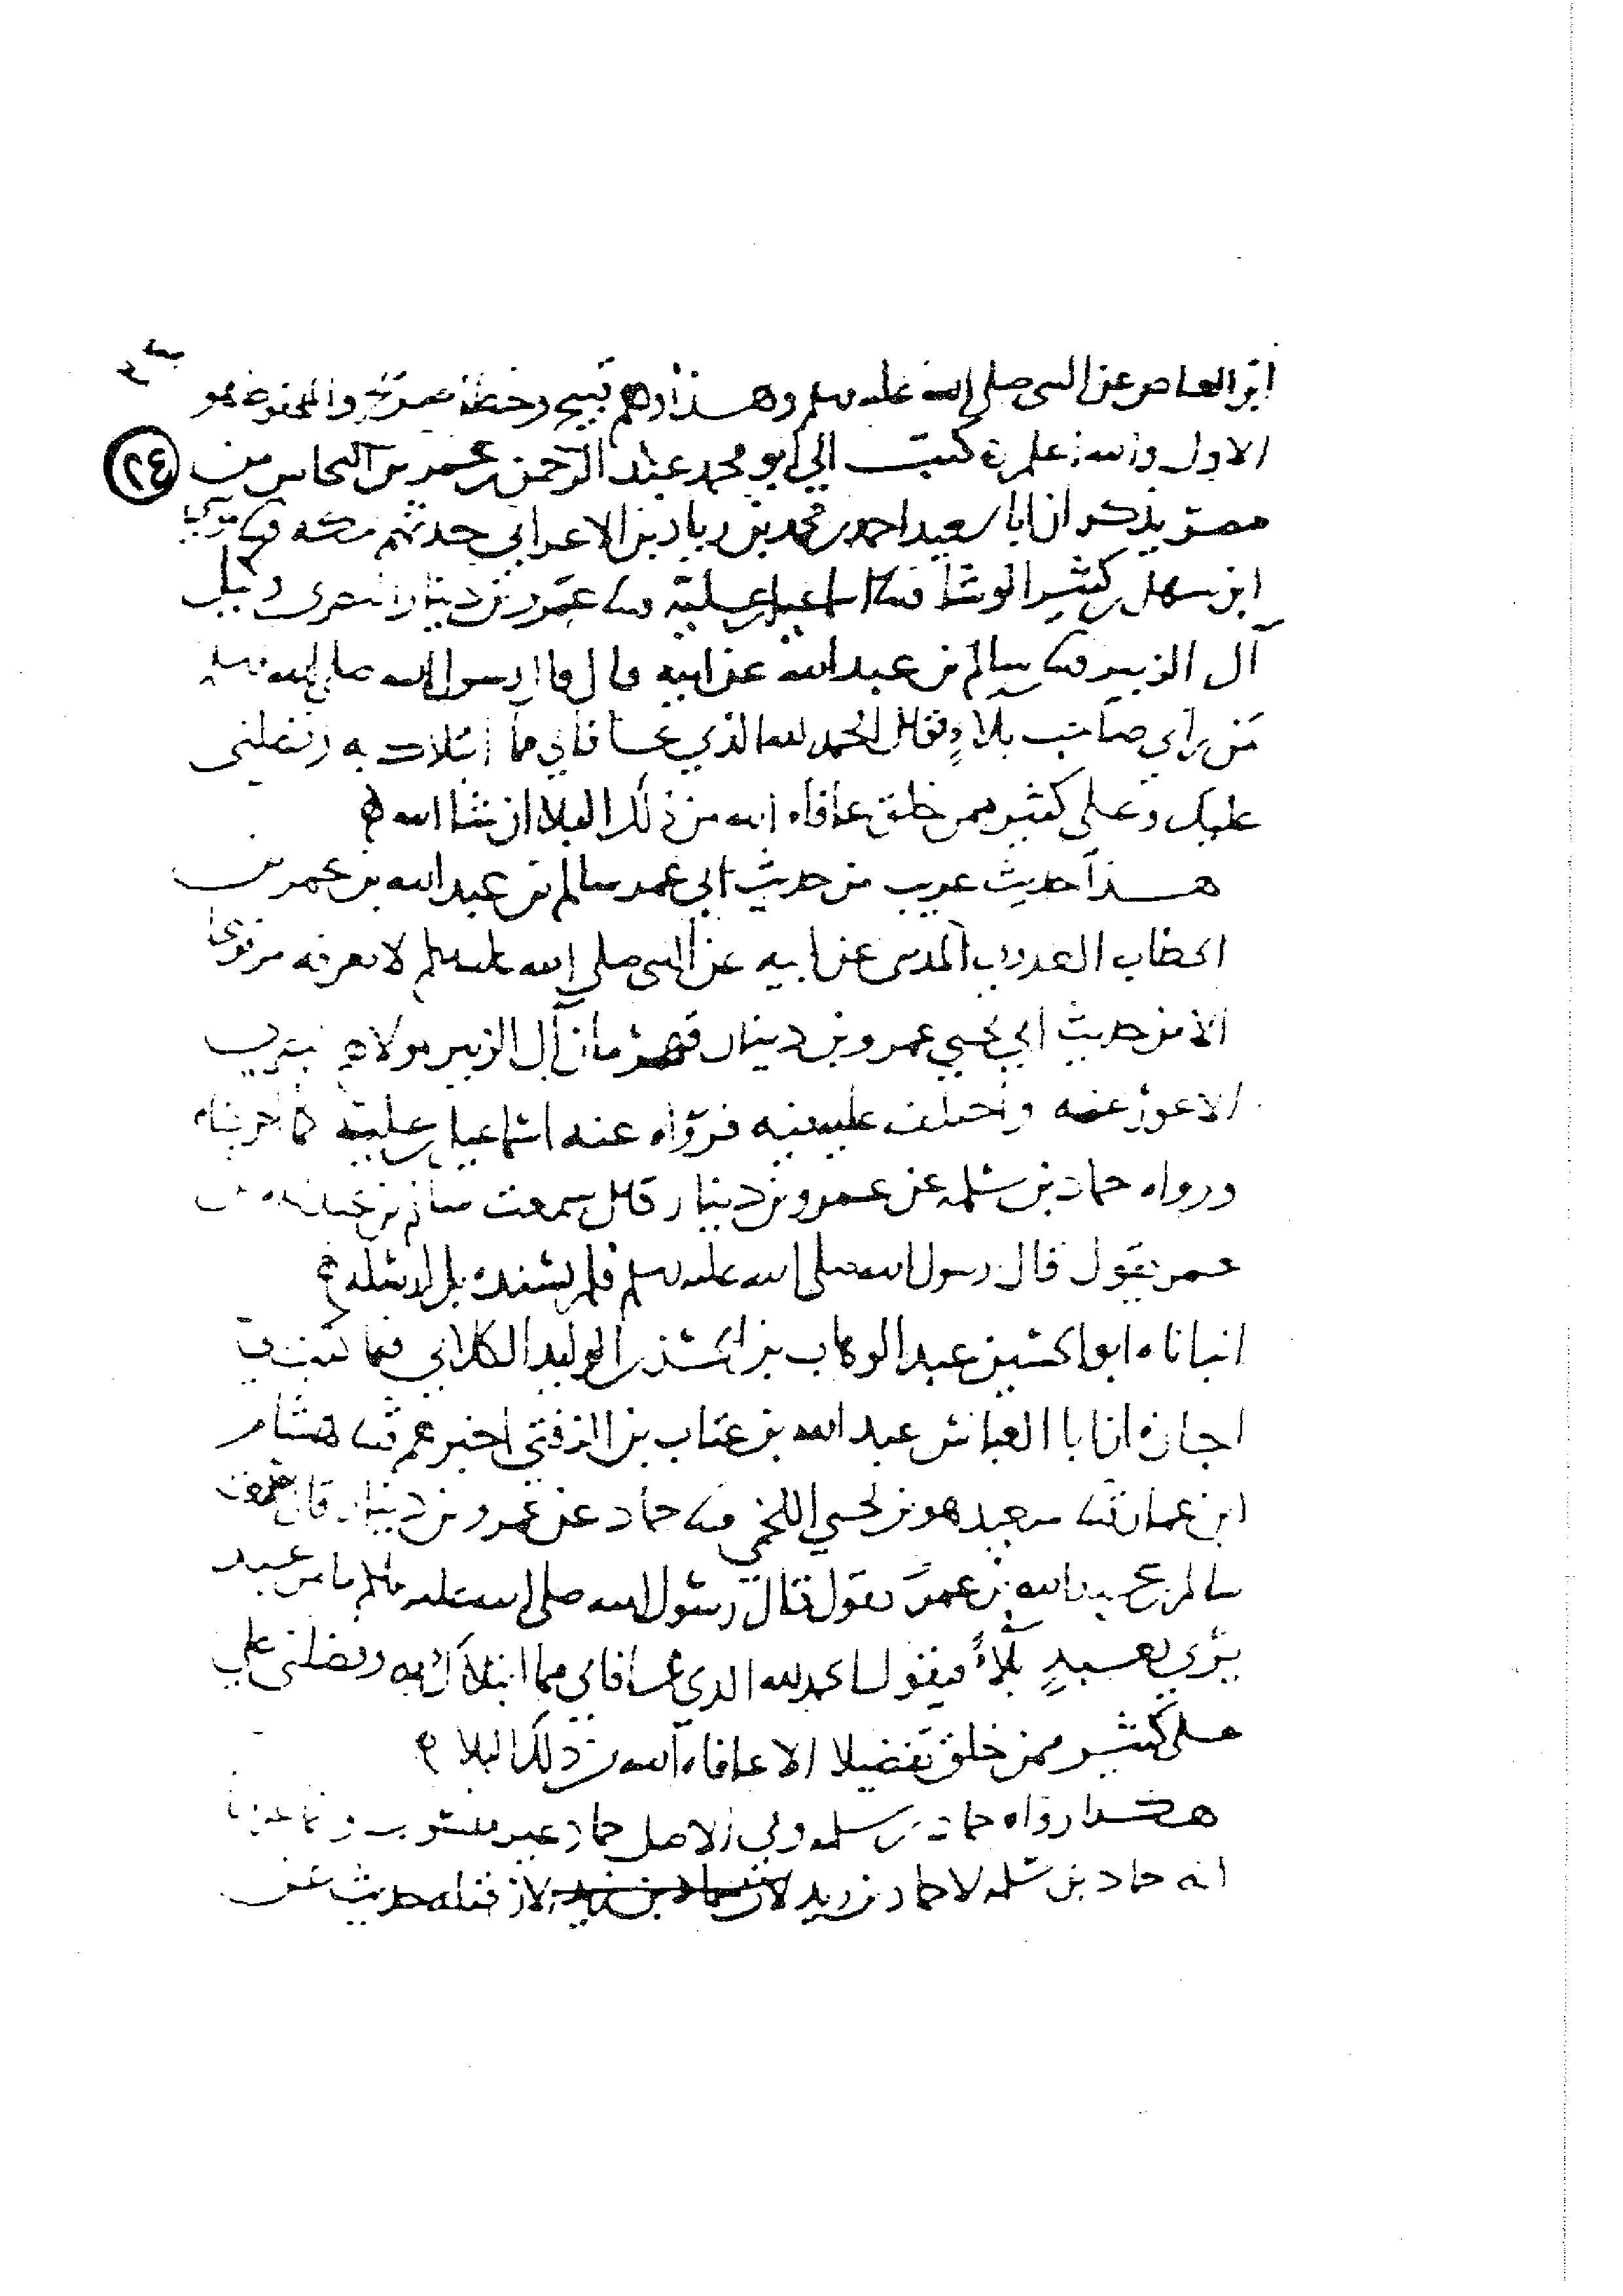 ابن العاص عن النبي صلى الله عليه وسلم وهذا وهم قبيح وخطأ صريح والمحفوظ هو
الاول والله اعلم كتب الي ابو محمد عبد الرحمن بن عمر بن النحاس من
٢٤
مصر يذكر ان ابا سعيد احمد بن محمد بن زياد بن الاعرابي حدثهم بمكه ثنا
ابن سهل بن كثير الوشا ثنا اسماعيل بن علية ثنا عمرو بن دينار البصري وكيل
آل الزبير ثنا سالم بن عبد الله عن ابيه قال قال رسول الله صلى الله عليه وسلم
من رأى صاحب بلاءٍ فقال الحمد لله الذي عافاني مما ابتلاك به وفضلني
عليك وعلى كثير ممن خلق عافاه الله من ذلك البلا ان شا الله
هذا حديث غريب من حديث ابي عمر سالم بن عبد الله بن عمر بن
الخطاب العدوي المدني عن ابيه عن النبي صلى الله عليه وسلم لا نعرفه مرفوعا
الا من حديث ابي يحيى عمرو بن دينار قهرمان آل الزبير مولاهم
الاعور عنه واختلف عليه فيه فرواه عنه اسماعيل بن علية كما اخرجناه
ورواه حماد بن سلمه عن عمرو بن دينار قال سمعت سالم بن عبد الله بن
عمر يقول قال رسول الله صلى الله عليه وسلم فلم يسنده بل ارسله
انباناه ابو الحسين عبد الوهاب بن الحسن بن الوليد الكلابي فيما كتب
اجازه ان ابا العباس عبد الله بن عتاب بن الزفتي اخبرهم ثنا هشام
ابن عمار ثنا سعيد هو بن يحيى اللخمي ثنا حماد عن عمرو بن دينار قال سمعت
سالم بن عبد الله بن عمر يقول قال رسول الله صلى الله عليه وسلم ما من عبد
يرى بعبدٍ بلاءً فيقول الحمد لله الذي عافاني مما ابتلاك به وفضلني على
على كثير ممن خلق تفضيلا الا عافاه الله من ذلك البلا
هكذا رواه حماد بن سلمه وفي الاصل حماد غير منسوب
انه حماد بن سلمه لا حماد بن زيد لان حماد بن زيد لان هذا حديث عن